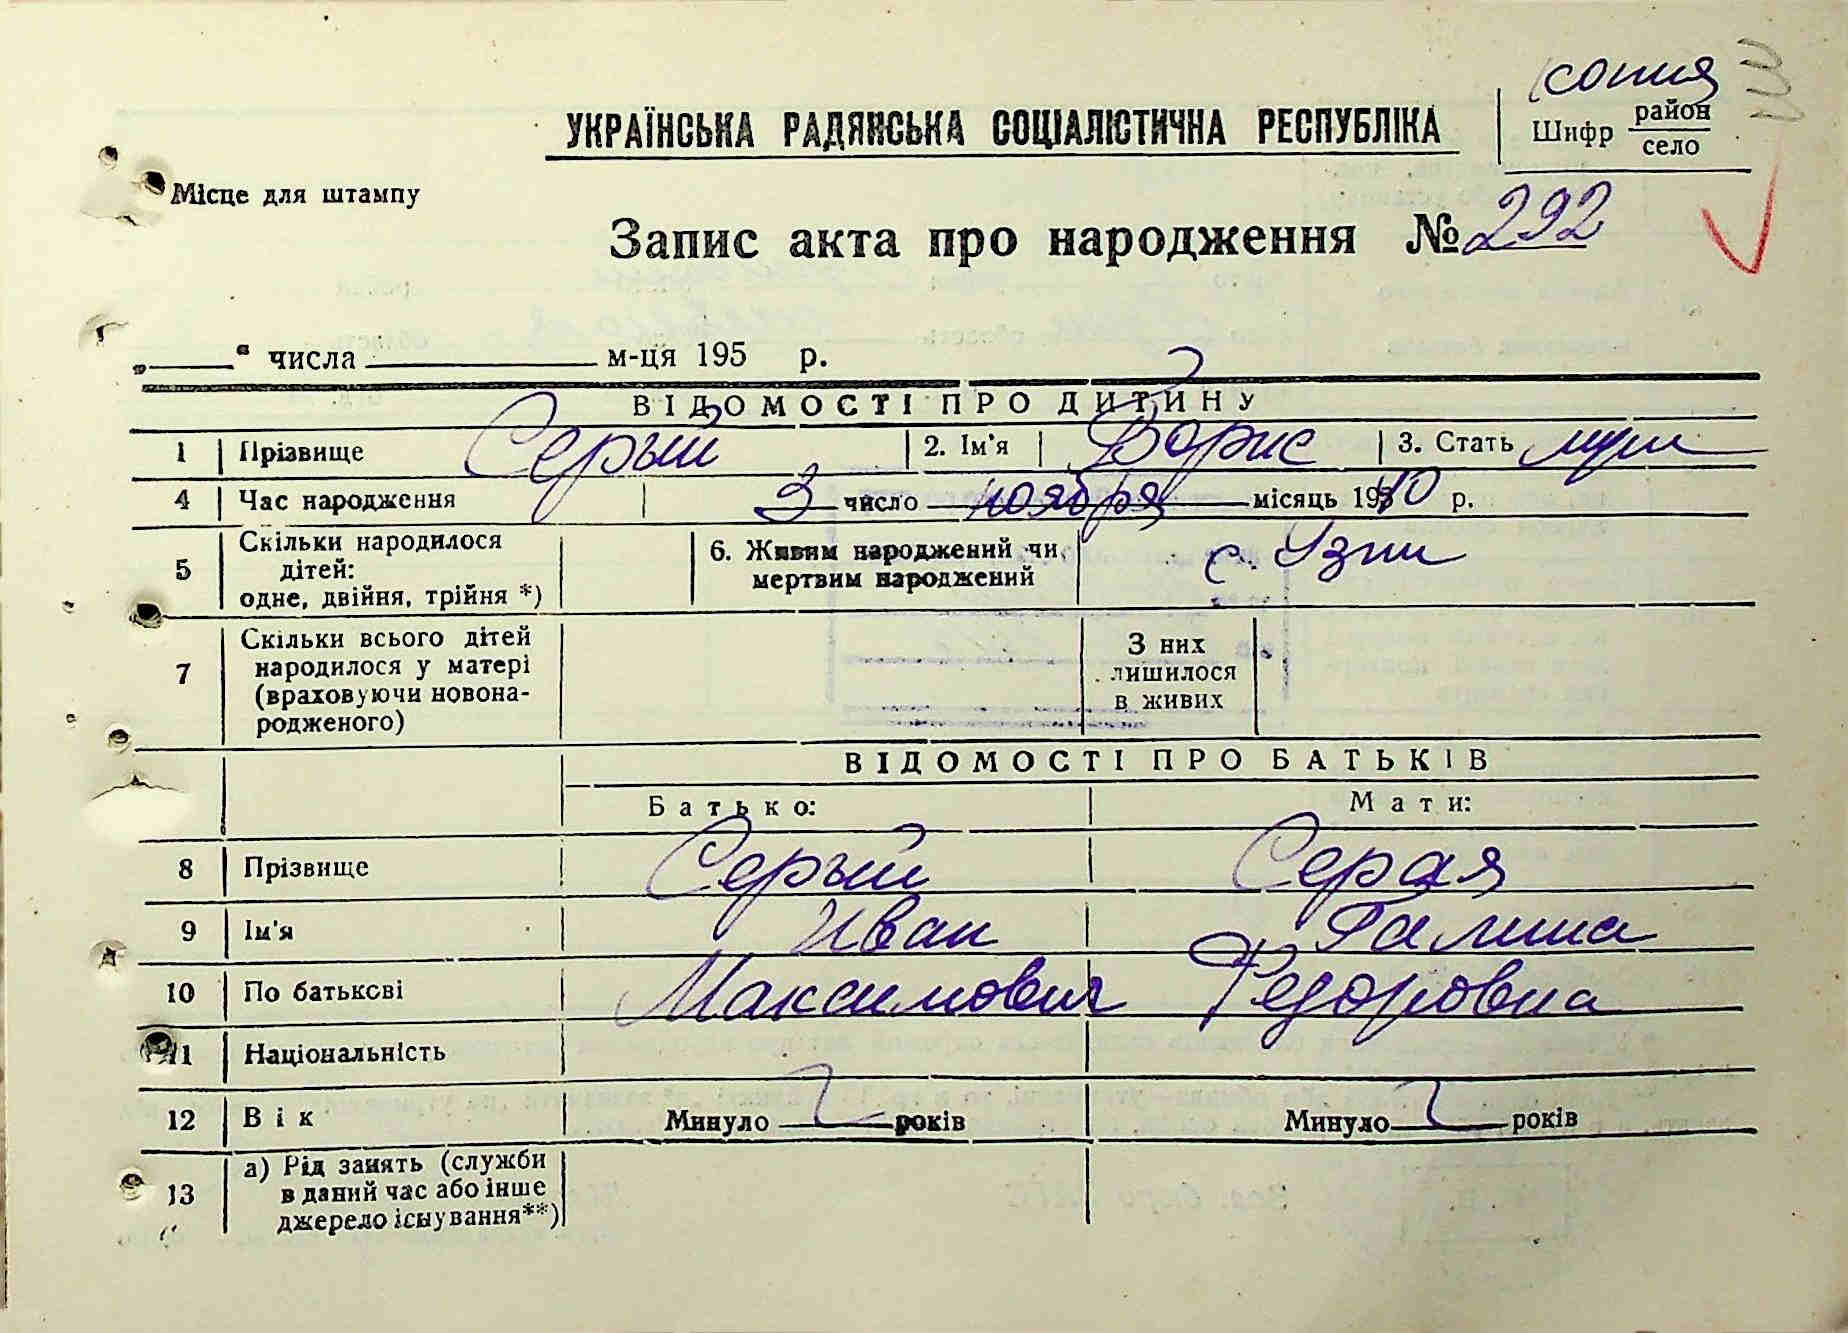 копия
УКРАЇНСЬКА РАДЯНСЬКА СОЦІАЛІСТИЧНА РЕСПУБЛІКА
Шифр район
село
Місце для штампу
Запис акта про народження № 292
„____“ числа ____ м-ця 195 р.
ВІДОМОСТІ ПРО ДИТИНУ
1 Прізвище Серый 2. Ім'я Борис 3. Стать муж
4 Час народження 3 число ноября місяць 1940 р.
5 Скільки народилося дітей: одне, двійня, трійня *) 6. Живим народжений чи мертвим народжений с. Узин
7 Скільки всього дітей народилося у матері (враховуючи новонародженого) З них лишилося в живих
ВІДОМОСТІ ПРО БАТЬКІВ
Батько: Мати:
8 Прізвище Серый Серая
9 Ім'я Иван Галина
10 По батькові Максимович Федоровна
11 Національність
12 Вік Минуло ____ років Минуло ____ років
13 а) Рід занять (служби в даний час або інше джерело існування**)